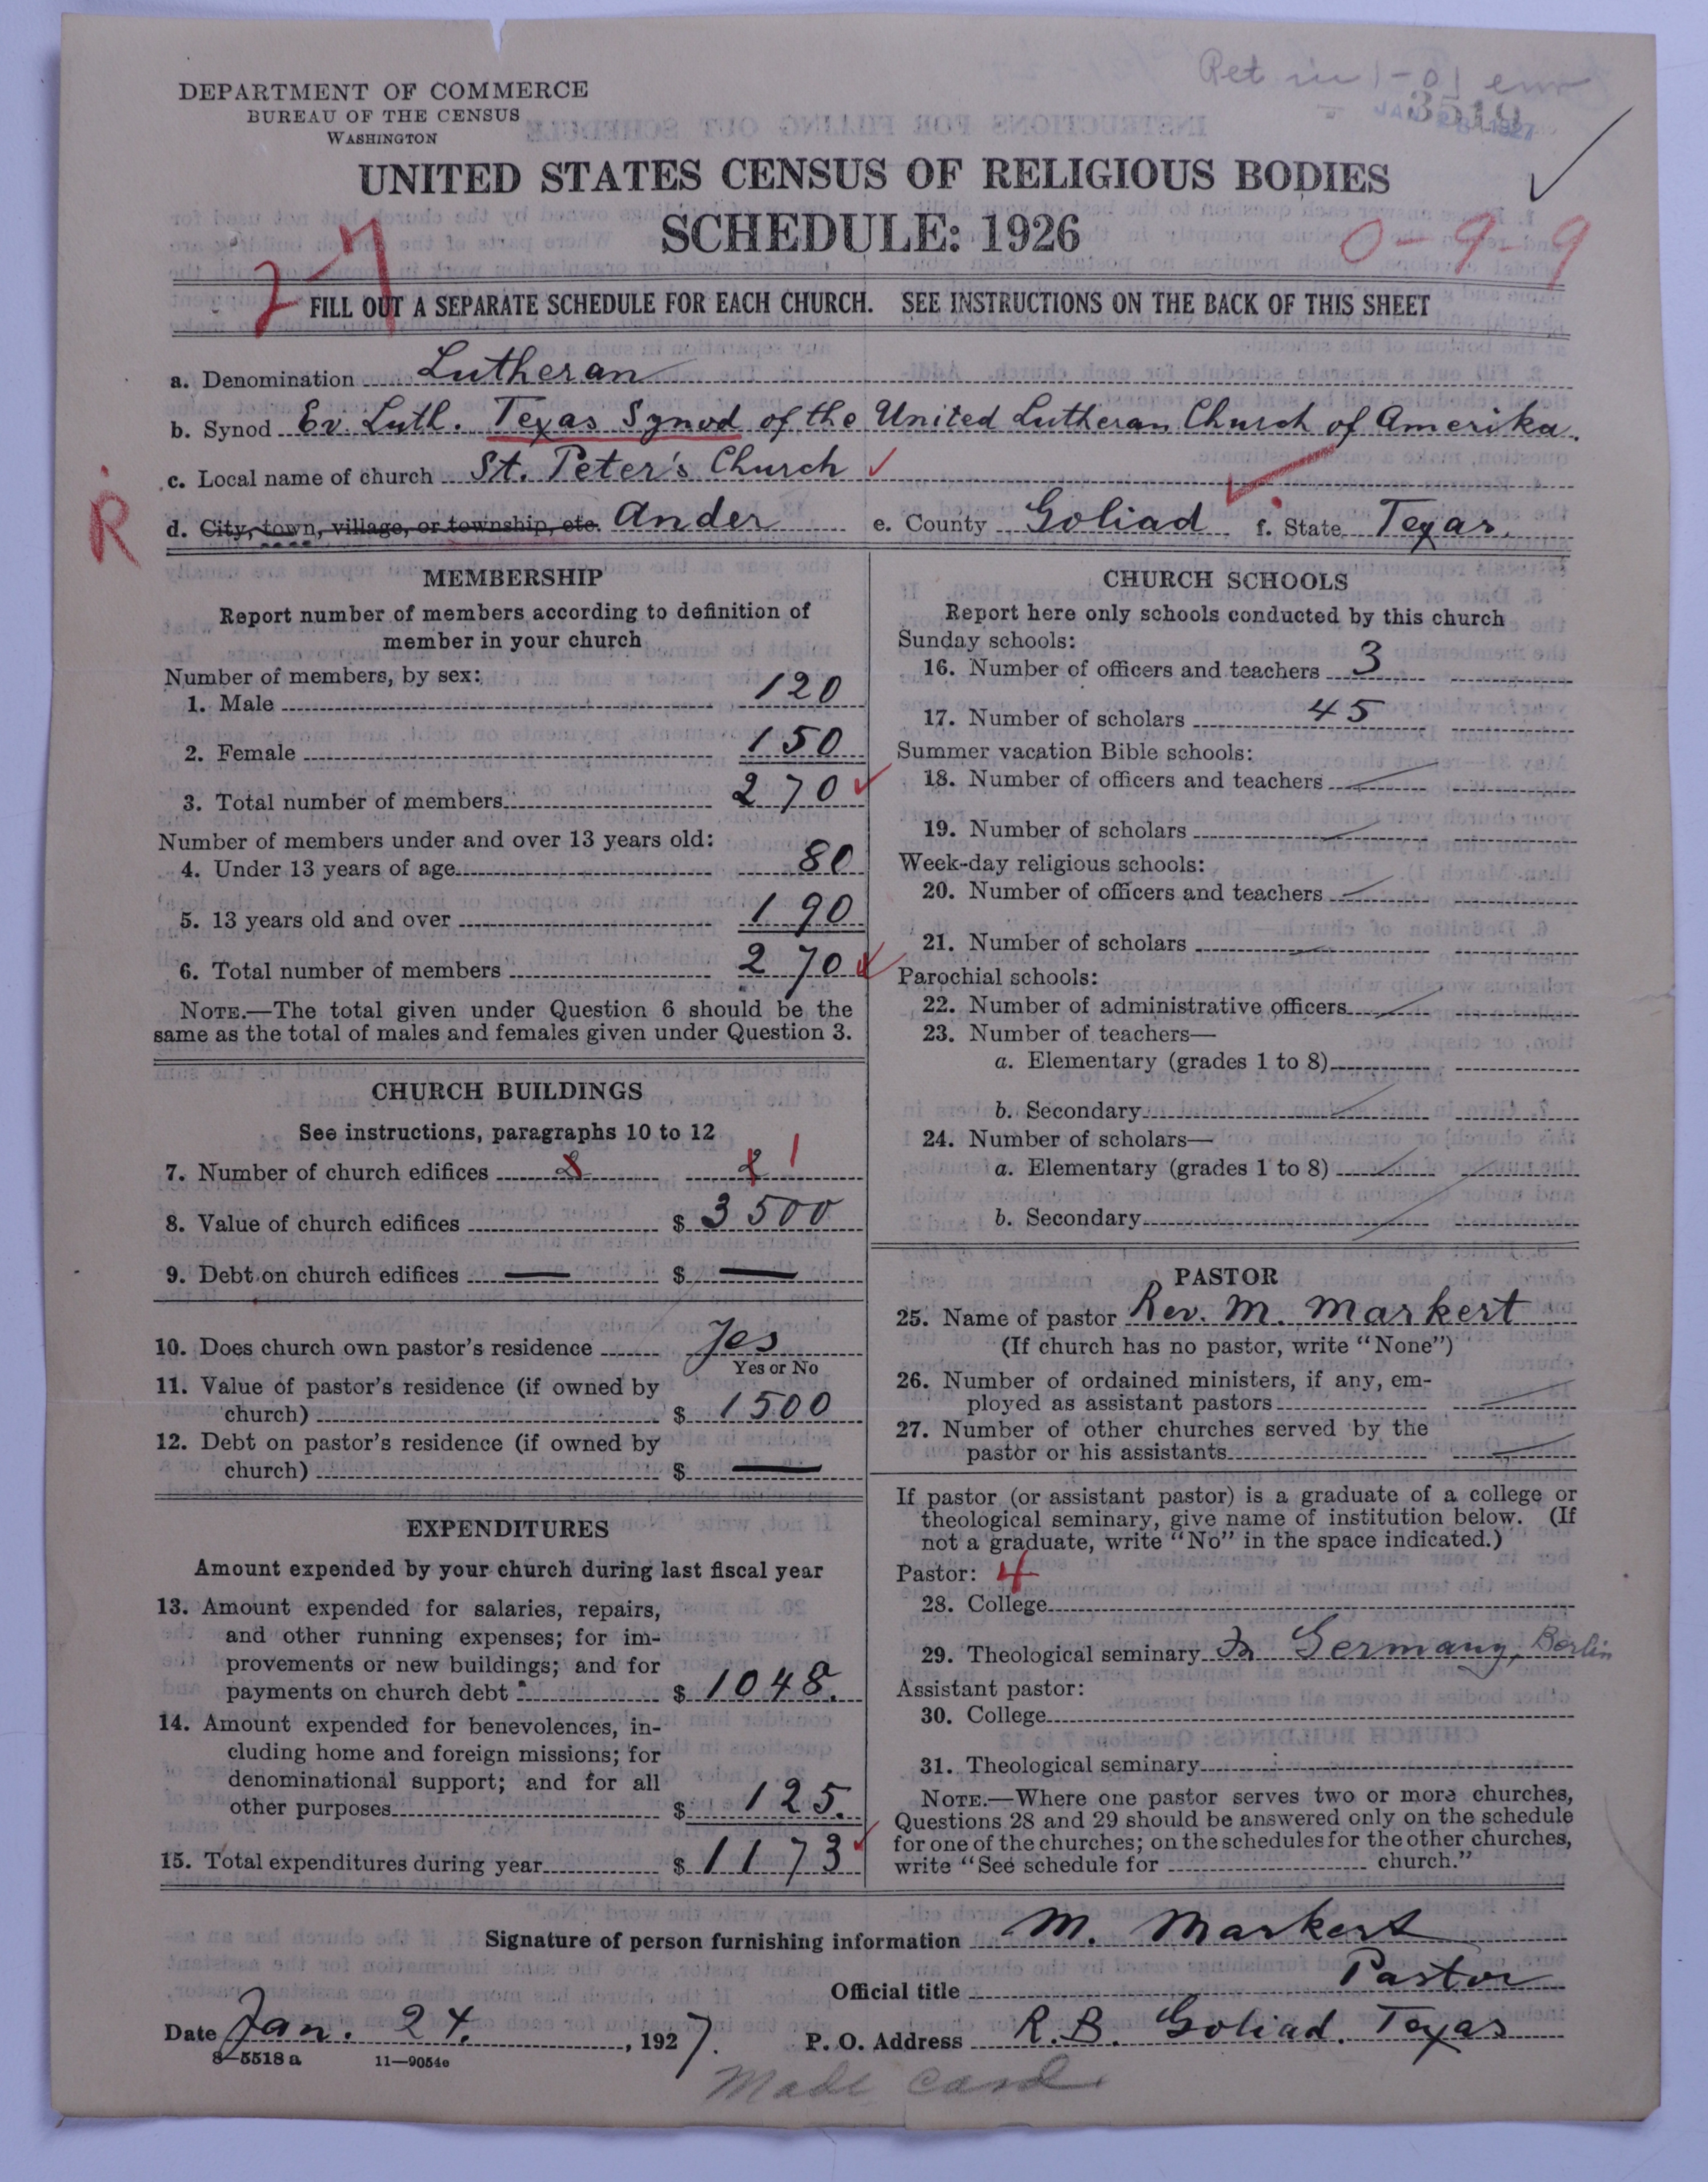 Ret in 1-01 env
3519
JAN 1927
DEPARTMENT OF COMMERCE
BUREAU OF THE CENSUS
WASHINGTON
UNITED STATES CENSUS OF RELIGIOUS BODIES
SCHEDULE: 1926
27
0-9-9
FILL OUT A SEPARATE SCHEDULE FOR EACH CHURCH. SEE INSTRUCTIONS ON THE BACK OF THIS SHEET
a. Denomination Lutheran
b. Synod Ev. Luth. Texas Synod of the United Lutheran Church of Amerika.
c. Local name of church St. Peter's Church
R
d. City, town, village, or township, etc. Ander e. County Goliad f. State Texas.
MEMBERSHIP
Report number of members according to definition of
member in your church
Number of members, by sex:
1. Male 120
2. Female 150
3. Total number of members 270
Number of members under and over 13 years old:
4. Under 13 years of age 80
5. 13 years old and over 190
6. Total number of members 270
NOTE.—The total given under Question 6 should be the
same as the total of males and females given under Question 3.
CHURCH BUILDINGS
See instructions, paragraphs 10 to 12
7. Number of church edifices 2 2 1
8. Value of church edifices $ 3500
9. Debt on church edifices — $ —
10. Does church own pastor's residence Yes
Yes or No
11. Value of pastor's residence (if owned by
church) $ 1500
12. Debt on pastor's residence (if owned by
church) $ —
EXPENDITURES
Amount expended by your church during last fiscal year
13. Amount expended for salaries, repairs,
and other running expenses; for im-
provements or new buildings; and for
payments on church debt $ 1048.
14. Amount expended for benevolences, in-
cluding home and foreign missions; for
denominational support; and for all
other purposes $ 125.
15. Total expenditures during year $ 1173
CHURCH SCHOOLS
Report here only schools conducted by this church
Sunday schools:
16. Number of officers and teachers 3
17. Number of scholars 45
Summer vacation Bible schools:
18. Number of officers and teachers
19. Number of scholars
Week-day religious schools:
20. Number of officers and teachers
21. Number of scholars
Parochial schools:
22. Number of administrative officers
23. Number of teachers—
a. Elementary (grades 1 to 8)
b. Secondary
24. Number of scholars—
a. Elementary (grades 1 to 8)
b. Secondary
PASTOR
25. Name of pastor Rev. M. Markert
(If church has no pastor, write "None")
26. Number of ordained ministers, if any, em-
ployed as assistant pastors
27. Number of other churches served by the
pastor or his assistants
If pastor (or assistant pastor) is a graduate of a college or
theological seminary, give name of institution below. (If
not a graduate, write "No" in the space indicated.)
Pastor: 4
28. College
29. Theological seminary In Germany, Berlin
Assistant pastor:
30. College
31. Theological seminary
NOTE.—Where one pastor serves two or more churches,
Questions 28 and 29 should be answered only on the schedule
for one of the churches; on the schedules for the other churches,
write "See schedule for church."
Signature of person furnishing information M. Markert
Official title Pastor
Date Jan. 24. , 1927. P. O. Address R.B. Goliad. Texas
8—5518 a 11—9054e
Made card